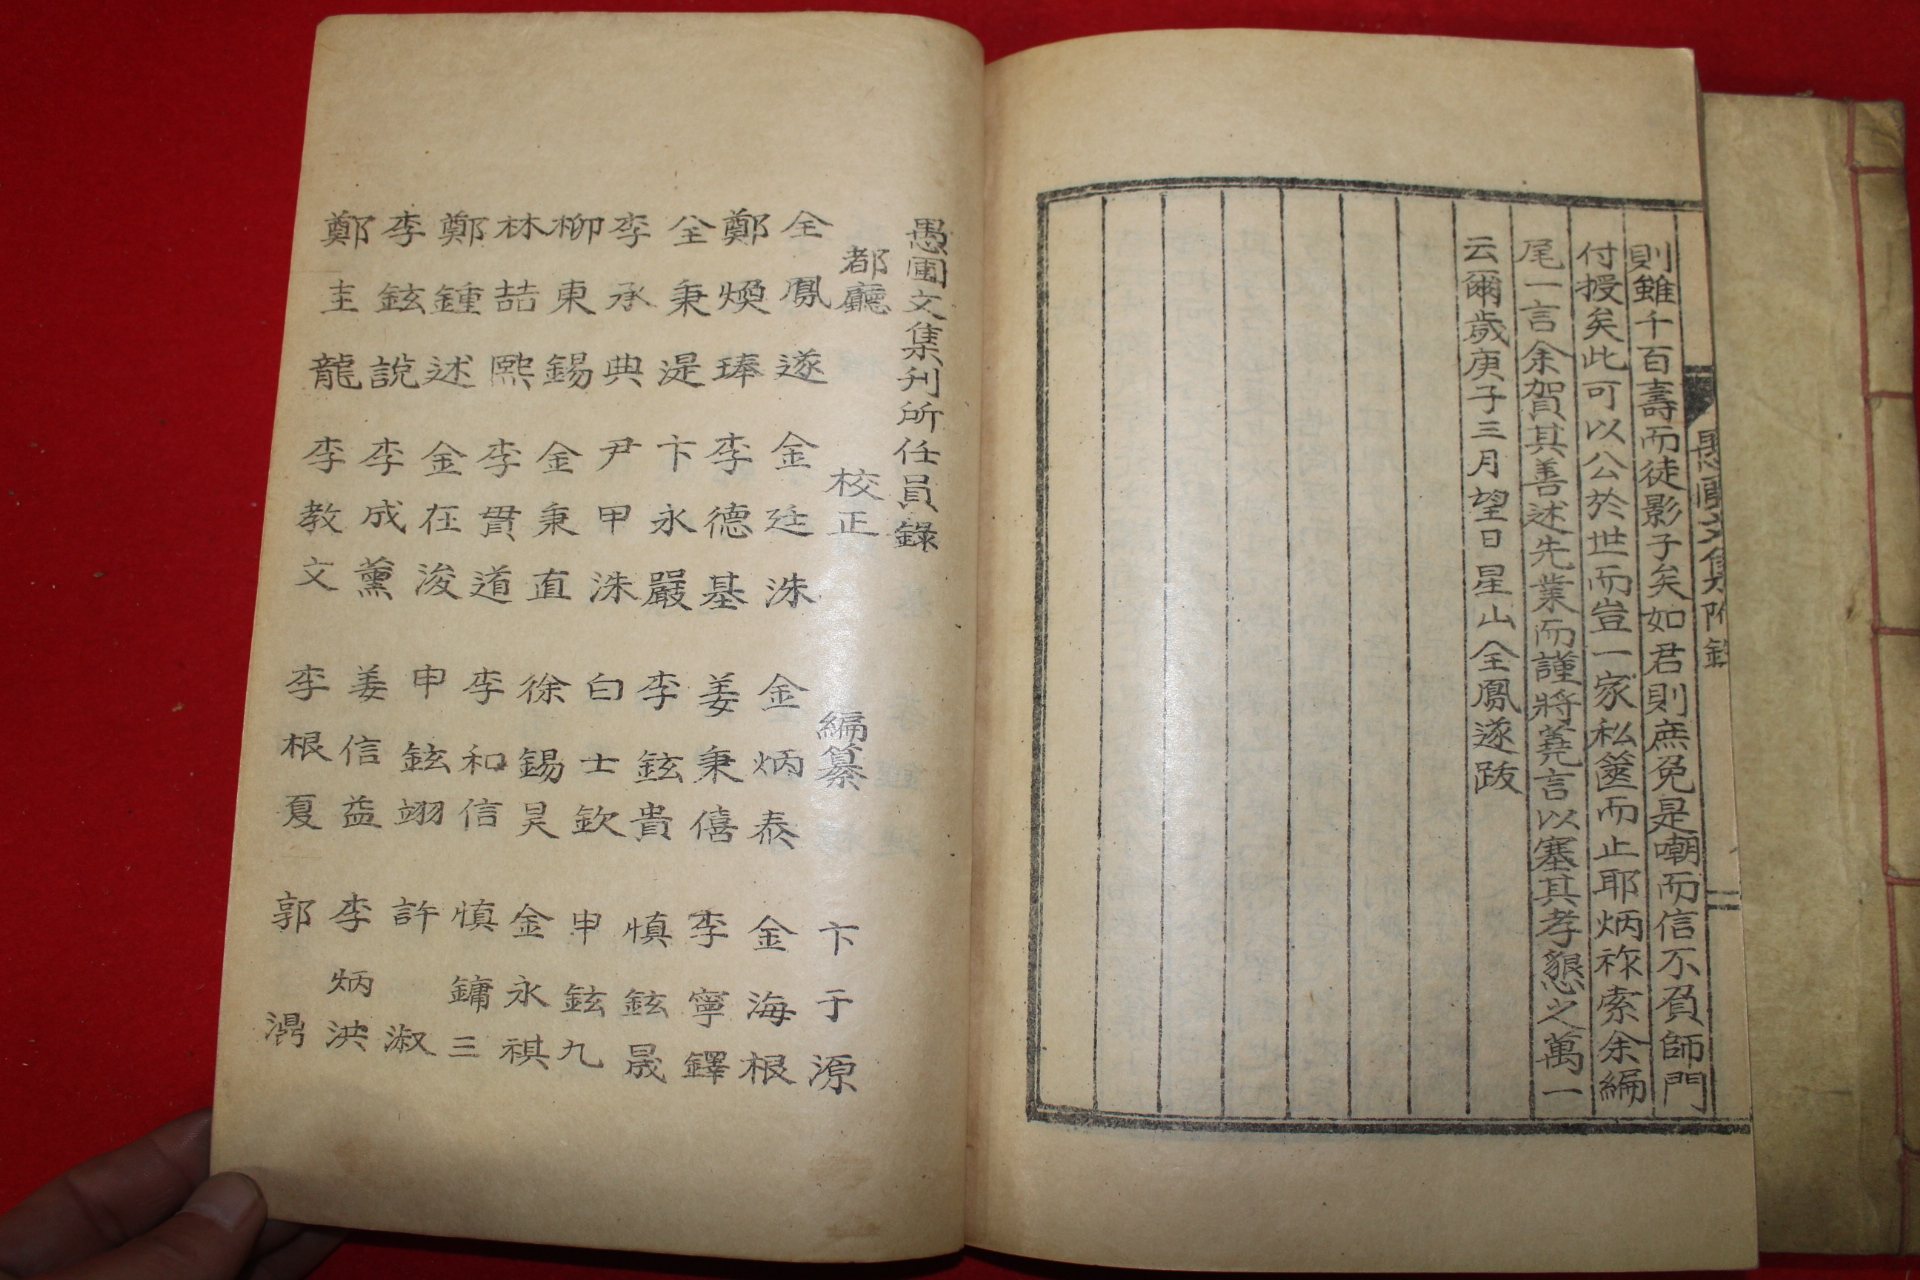 則雖千百壽而徒影子矣如君則庶免是嘲而信不負師門
付授矣此可以公於世而豈一家私篋而止耶炳祚索余編
尾一言余賀其善述先業而謹將蕘言以塞其孝懇之萬一
云爾歲庚子三月望日星山全鳳遂跋
愚圃文集附錄
愚圃文集刊所任員錄
都廳
全鳳遂
鄭煥琫
全秉湜
李承典
柳東錫
林喆熙
鄭鍾述
李鉉說
鄭圭龍
校正
金廷洙
李德基
卞永嚴
尹甲洙
金秉直
李貫道
金在浚
李成薰
李教文
編纂
金炳泰
姜秉僖
李鉉貴
白士欽
徐錫昊
李和信
申鉉翊
姜信益
李根夏
卞于源
金海根
李寧鐸
愼鉉晟
申鉉九
金永祺
愼鏞三
許淑
李炳洪
郭